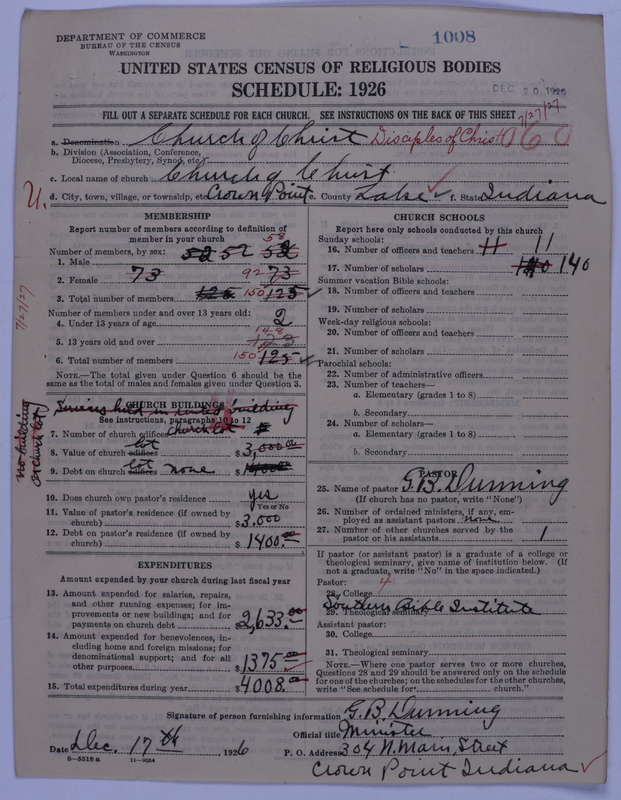 DEPARTMENT OF COMMERCE
BUREAU OF THE CENSUS
WASHINGTON
1008
UNITED STATES CENSUS OF RELIGIOUS BODIES
SCHEDULE: 1926
DEC 20 1926
FILL OUT A SEPARATE SCHEDULE FOR EACH CHURCH. SEE INSTRUCTIONS ON THE BACK OF THIS SHEET
7/27/27
a. Denomination Church of Christ Disciples of Christ
b. Division (Association, Conference,
Diocese, Presbytery, Synod, etc.)
c. Local name of church Church of Christ
U. d. City, town, village, or township, etc. Crown Point e. County Lake f. State Indiana
MEMBERSHIP
Report number of members according to definition of
member in your church
58
Number of members, by sex: 52 52
1. Male
2. Female 73 92 73
3. Total number of members 125 150 125
7/27/27
Number of members under and over 13 years old:
4. Under 13 years of age 2
148
5. 13 years old and over 123
6. Total number of members 150 125
NOTE.—The total given under Question 6 should be
same as the total of males and females given under Question 3.
CHURCH BUILDINGS
Services held in rented building
See instructions, paragraphs 10 to 12
no building on church lot
7. Number of church edifices church lot
8. Value of church edifices lot $ 3,000.00
9. Debt on church edifices lot none $
10. Does church own pastor's residence yes
Yes or No
11. Value of pastor's residence (if owned by
church) $ 3.000
12. Debt on pastor's residence (if owned by
church) $ 1400.00
EXPENDITURES
Amount expended by your church during last fiscal year
13. Amount expended for salaries, repairs,
and other running expenses; for im-
provements or new buildings; and for
payments on church debt $ 2,633.00
14. Amount expended for benevolences, in-
cluding home and foreign missions; for
denominational support; and for all
other purposes $ 1375.00
15. Total expenditures during year $ 4008.00
CHURCH SCHOOLS
Report here only schools conducted by this church
Sunday schools:
16. Number of officers and teachers 11 11
17. Number of scholars 140 140
Summer vacation Bible schools:
18. Number of officers and teachers
19. Number of scholars
Week-day religious schools:
20. Number of officers and teachers
21. Number of scholars
Parochial schools:
22. Number of administrative officers
23. Number of teachers—
a. Elementary (grades 1 to 8)
b. Secondary
24. Number of scholars—
a. Elementary (grades 1 to 8)
b. Secondary
PASTOR
25. Name of pastor G. B. Dunning
(If church has no pastor, write "None")
26. Number of ordained ministers, if any, em-
ployed as assistant pastors none
27. Number of other churches served by the
pastor or his assistants 1
If pastor (or assistant pastor) is a graduate of a college or
theological seminary, give name of institution below. (If
not a graduate, write "No" in the space indicated.)
Pastor:
28. College
29. Theological seminary Southern Bible Institute
Assistant pastor:
30. College
31. Theological seminary
NOTE.—Where one pastor serves two or more churches,
Questions 28 and 29 should be answered only on the schedule
for one of the churches; on the schedules for the other churches,
write "See schedule for church."
Signature of person furnishing information G. B. Dunning
Official title Minister
Date Dec. 17th, 1926 P. O. Address 304 N. Main Street
8—5518a 11—9254
Crown Point Indiana